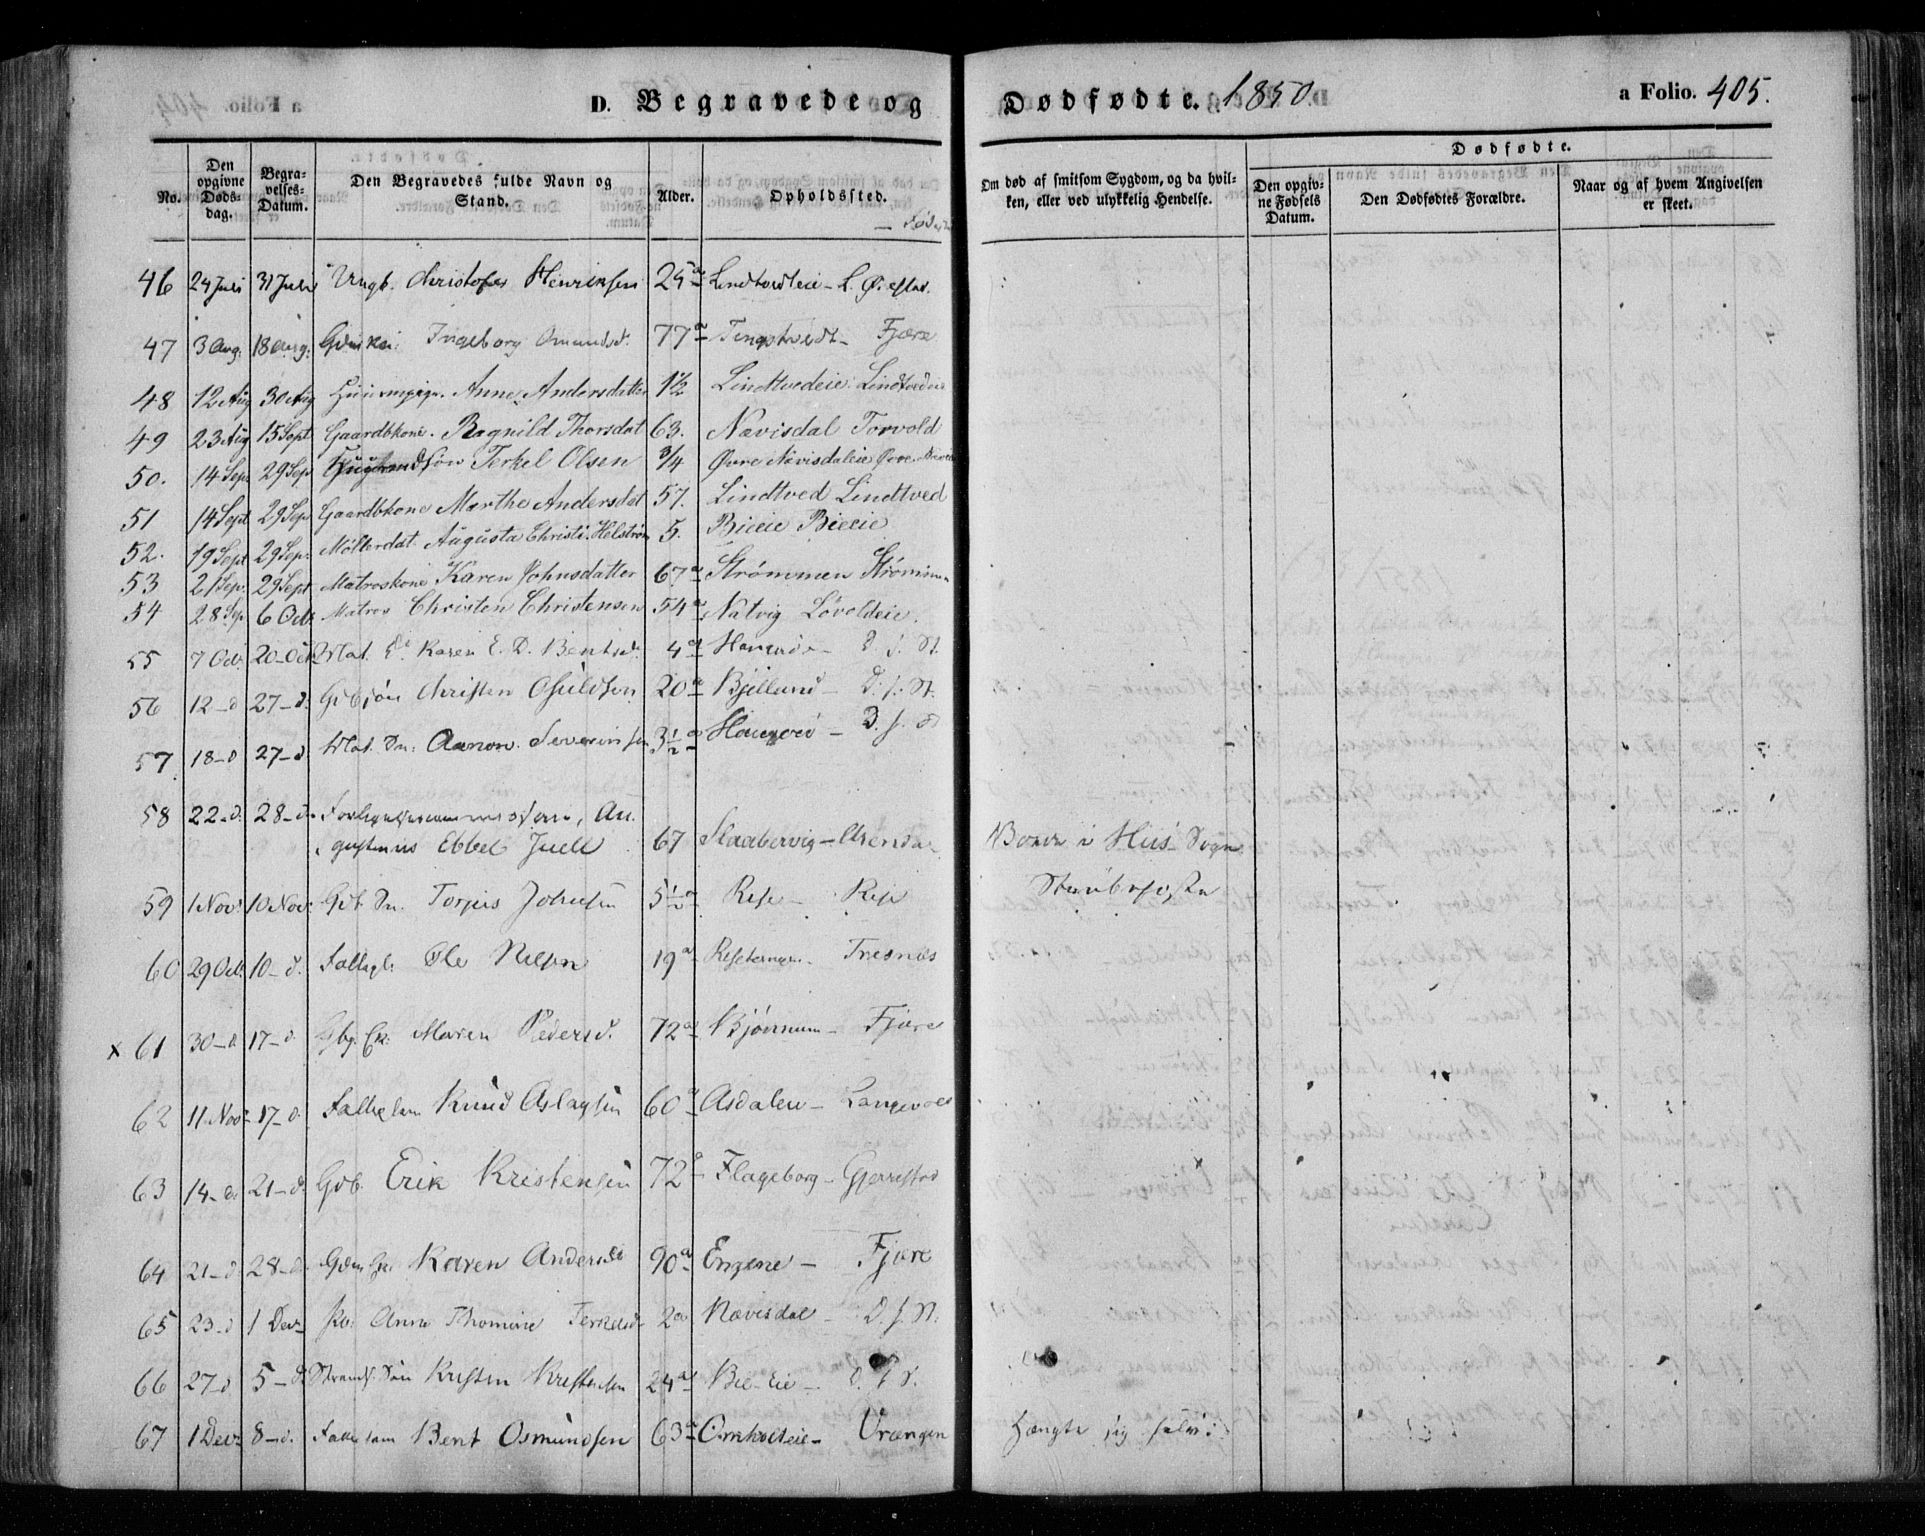 D. Begravede og Dødfødte. 1850. a Folio. 405.
No. Den opgivne Døds-dag. Begra-velses-Datum. Den Begravedes fulde Navn og Stand. Alder. Opholdssted. Om død af smitsom Sygdom, og da hvil-ken, eller ved ulykkelig Hendelse. Dødfødte. Den opgiv-ne Fødsels Datum. Den Dødfødtes Forældre. Naar og af hvem Angivelsen er skeet.
46 24 Juli 31 Juli Ungk. Christofer Henriksen 25 a Lindtvedteie - L. Øiestad.
47 3 Aug. 18 Aug. Ingeborg Omundsd. 77 a Tingstvedt - Fjære
48 12 Aug 30 Aug Anne Andersdatter 1½ Lindtvedeie Lindtvedeie
49 23 Aug 15 Sept Gaardbkone. Ragnild Thorsdat 63. Nævisdal Torvold
50. 14 Sep. 29 Sep søn Terkel Olsen 3/4 Øvre Nævisdaleie Øvre
51 14 Sept 29 Sep Gaardbkone Marthe Andersdat 57. Lindtved Lindtved
52. 19 Sept 29 Sep. Møllerdat. Augusta Christi. Helstrøm 5. Bieeie Bieeie
53 21 Sep. 29 Sept Matroskone Karen Johnsdatter 67 a Strømmen Strømmen
54 28 Sep. 6 Octr Matros Christen Christensen 54 a Natvig Løvoldeie.
55 7 Octr 20 Oct Mat. D. Karen E. D. Bentsd. 4 a D. f. St.
56 12 - d 27 - d. Gdb søn Christen Osuldsen 20 a Bjellund - D. f. St.
57 18 - d 27 - d. Mat. Sn: Aanon Severinsen 3½ a - D. f. St
58 22 - d. 28 - d. Au-
gustinus Ebbel Juell 67 Staabervig - Arendal Boede i Hiis Sogn
59 1 Nov. 10 Nov. Gdb. Sn. Torjus Johnsen 5½ a Rise - Rise
60 29 Oct. 10 - d. Fattigl. Ole Nilsen 19 a Tresnes
x 61 30 - d. 17 - d. Maren Pedersd. 72 a Bjørnum - Fjære
62 11 Nov. 17 - d. Fattig lem Knud Aslagsen 60 a Asdalen - Langevold
63 14 - d. 21 - d. Gdb. Erik Kristensen 72 a Flageborg - Gjerrestad
64 21 - d 28 - d. Karen Andersd 90 a Engene - Fjære
65 23 - d 1 Decr Anne Thomine Terkelsd. 2 a Nævisdal - D. f. St.
66 27 - d 5 - d. Strands. Søn Kristen Kristensen 24 a Bie-eie - D. f. S.
67 1 Decr 8 - d. Fattig lem Bent Osmundsen 63 a Omholteie - Vrængen Hængte sig selv: